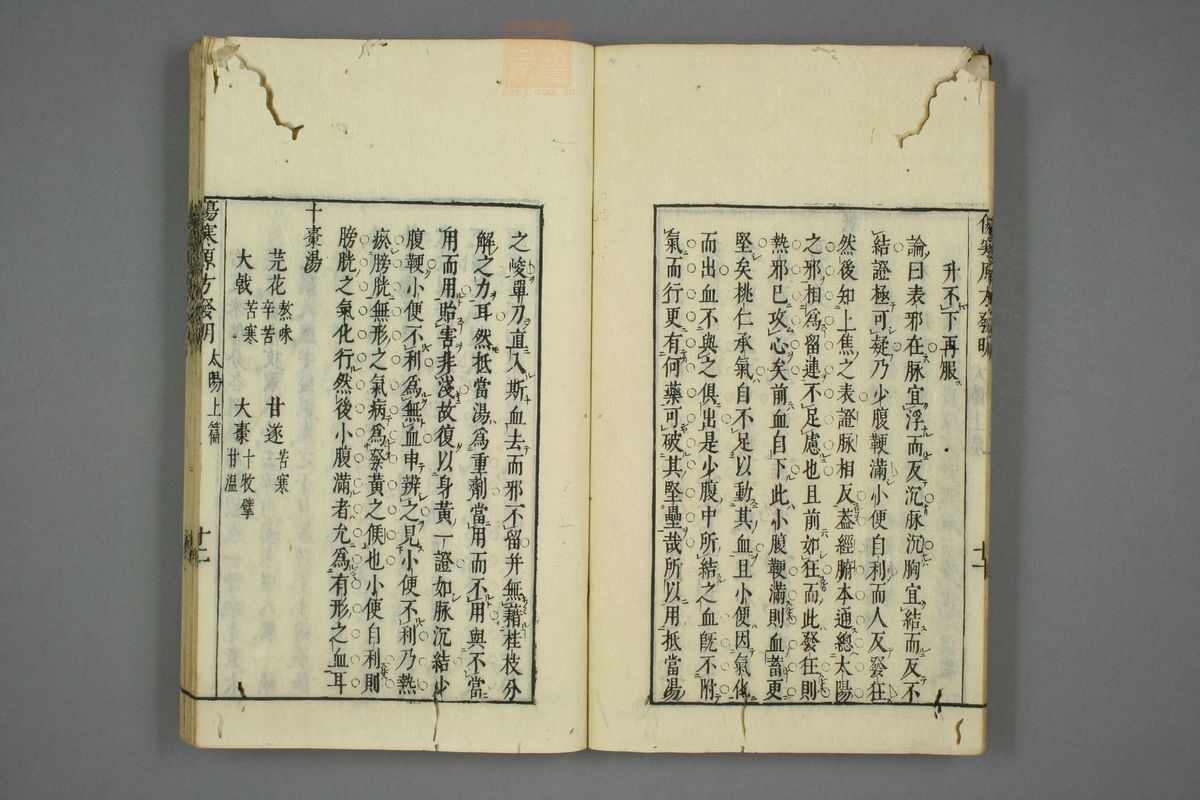 升不下再服
論曰表邪在脉宜浮而反沉脉沉胸宜結而反不
結證極可疑乃少腹鞕滿小便自利而人反發狂
然後知上焦之表證脉相反葢經腑本通總太陽
之邪相為留連不足慮也且前如狂而此發狂則
熱邪已攻心矣前血自下此小腹鞕滿則血蓄更
堅矣桃仁承氣自不足以動其血且小便因氣化
而出血不與之俱出是少腹中所結之血旣不附
氣而行更有何藥可破其堅壘哉所以用抵當湯
之峻單刀直入斯血去而邪不留并無藉桂枝分
解之力耳然抵當湯為重劑當用而不用與不當
用而用貽害非淺故復以身黃一證如脉沉結少
腹鞕小便不利為無血申辨之見小便不利乃熱
瘀膀胱無形之氣病為發黃之候也小便自利則
膀胱之氣化行然後小腹滿者允為有形之血耳
十棗湯
芫花 熬味辛苦 甘遂 苦寒
大戟 苦寒 大棗 十枚擘甘溫
傷寒原方發明 太陽上篇 十二